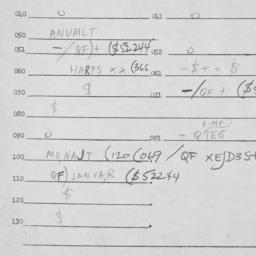 040 0 041 0
050 ANUMLT
051 -/QF)+ ($52244 052 0
060 HARPS xx (366 061 -$+= $
070 $ 071 -/QF + ($5
080 $
090 0 091 - QTEG
100 MONAJT (120 (069 /QF XEJD35
110 QF) JANVAR ($52244
120 $
130 $